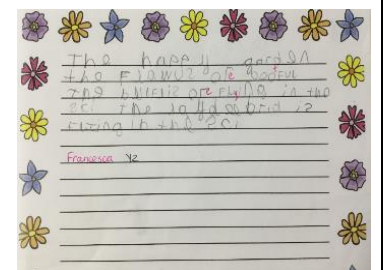 The happy garden
the Flowuz are bootful
the butfliz are flying in the
sci. the ladd ebrid is
fliing in the sci
Francesca Y2